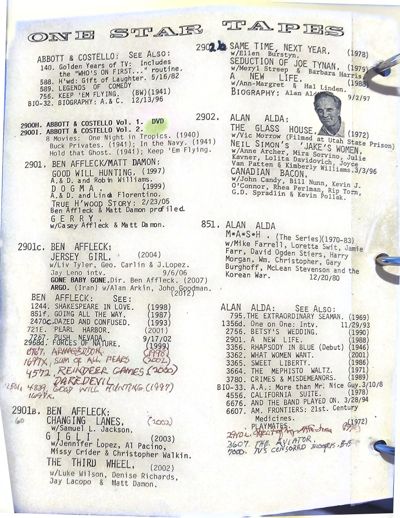 ONE STAR TAPES
ABBOTT & COSTELLO: SEE ALSO:
140. Golden Years of TV: Includes
the "WHO'S ON FIRST..." routine.
588. H'wd: Gift of Laughter. 5/16/82
589. LEGENDS OF COMEDY
756. KEEP 'EM FLYING. (BW)(1941)
BIO-32. BIOGRAPHY: A.& C. 12/13/96
2900H. ABBOTT & COSTELLO Vol. 1. DVD
2900I. ABBOTT & COSTELLO Vol. 2.
8 Movies: One Night in Tropics. (1940)
Buck Privates. (1941); In the Navy. (1941)
Hold that Ghost. (1941); Keep 'Em Flying.
2901. BEN AFFLECK/MATT DAMON:
GOOD WILL HUNTING. (1997)
A.& D. and Robin Williams.
DOGMA. (1999)
A.& D. and Linda Florentino.
TRUE H'WOOD STORY: 2/23/05
Ben Affleck & Matt Damon profiled.
GERRY.
w/Casey Affleck & Matt Damon.
2901c. BEN AFFLECK:
JERSEY GIRL. (2004)
w/Liv Tyler, Geo. Carlin & J.Lopez.
Jay Leno intv. 9/6/06
GONE BABY GONE.Dir. Ben Affleck. (2007)
ARGO. (Iran) w/Alan Arkin, John Goodman.
(2012)
BEN AFFLECK: SEE:
1244. SHAKESPEARE IN LOVE. (1998)
851f. GOING ALL THE WAY. (1987)
2470c.DAZED AND CONFUSED. (1993)
721f. PEARL HARBOR. (2001)
PUSH NEVADA. 9/17/02
2968d. FORCES OF NATURE. (1999)
ARMAGEDDON (1998)
1697x. SUM OF ALL FEARS (2002)
457x. REINDEER GAMES (2000)
DAREDEVIL
483x. GOOD WILL HUNTING (1997)
2901a. BEN AFFLECK:
CHANGING LANES. (2002)
w/Samuel L. Jackson.
GIGLI. (2003)
w/Jennifer Lopez, Al Pacino,
Missy Crider & Christopher Walkin.
THE THIRD WHEEL. (2002)
w/Luke Wilson, Denise Richards,
Jay Lacopo & Matt Damon.
2902b SAME TIME, NEXT YEAR. (1978)
w/Ellen Burstyn.
SEDUCTION OF JOE TYNAN. (1979)
w/Meryl Streep & Barbara Harris
A NEW LIFE. (1988)
w/Ann-Margret & Hal Linden.
BIOGRAPHY: Alan Alda 9/2/97
2902. ALAN ALDA:
THE GLASS HOUSE. (1972)
w/Vic Morrow (Filmed at Utah State Prison)
NEIL SIMON'S 'JAKE'S WOMEN.
w/Anne Archer, Mira Sorvino, Julie
Kavner, Lolita Davidovich, Joyce
Van Patten & Kimberly Williams.3/3/96
CANADIAN BACON.
w/John Candy, Bill Nunn, Kevin J.
O'Connor, Rhea Perlman, Rip Torn,
G.D. Spradlin & Kevin Pollak.
851. ALAN ALDA
M*A*S*H. (The Series)(1970-83)
w/Mike Farrell, Loretta Swit, Jamie
Farr, David Ogden Stiers, Harry
Morgan, Wm. Christopher, Gary
Burghoff, McLean Stevenson and the
Korean War. 12/20/80
ALAN ALDA: SEE:
795.THE EXTRAORDINARY SEAMAN. (1969)
1356d. One on One: Intv. 11/29/93
2756. BETSY'S WEDDING. (1990)
2901. A NEW LIFE. (1988)
3356. RHAPSODY IN BLUE (Debut) (1946)
3362. WHAT WOMEN WANT. (2001)
3365. SWEET LIBERTY. (1986)
3664. THE MEPHISTO WALTZ. (1971)
3780. CRIMES & MISDEMEANORS. (1989)
BIO-33. A.A.: More than Mr. Nice Guy.3/10/8
4556. CALIFORNIA SUITE. (1978)
6676. AND THE BAND PLAYED ON. 3/28/94
6607. AM. FRONTIERS: 21st. Century
Medicines.
PLAYMATES. (1972)
3607. THE AVIATOR.
900D. TV'S CENSORED BLOOPERS.